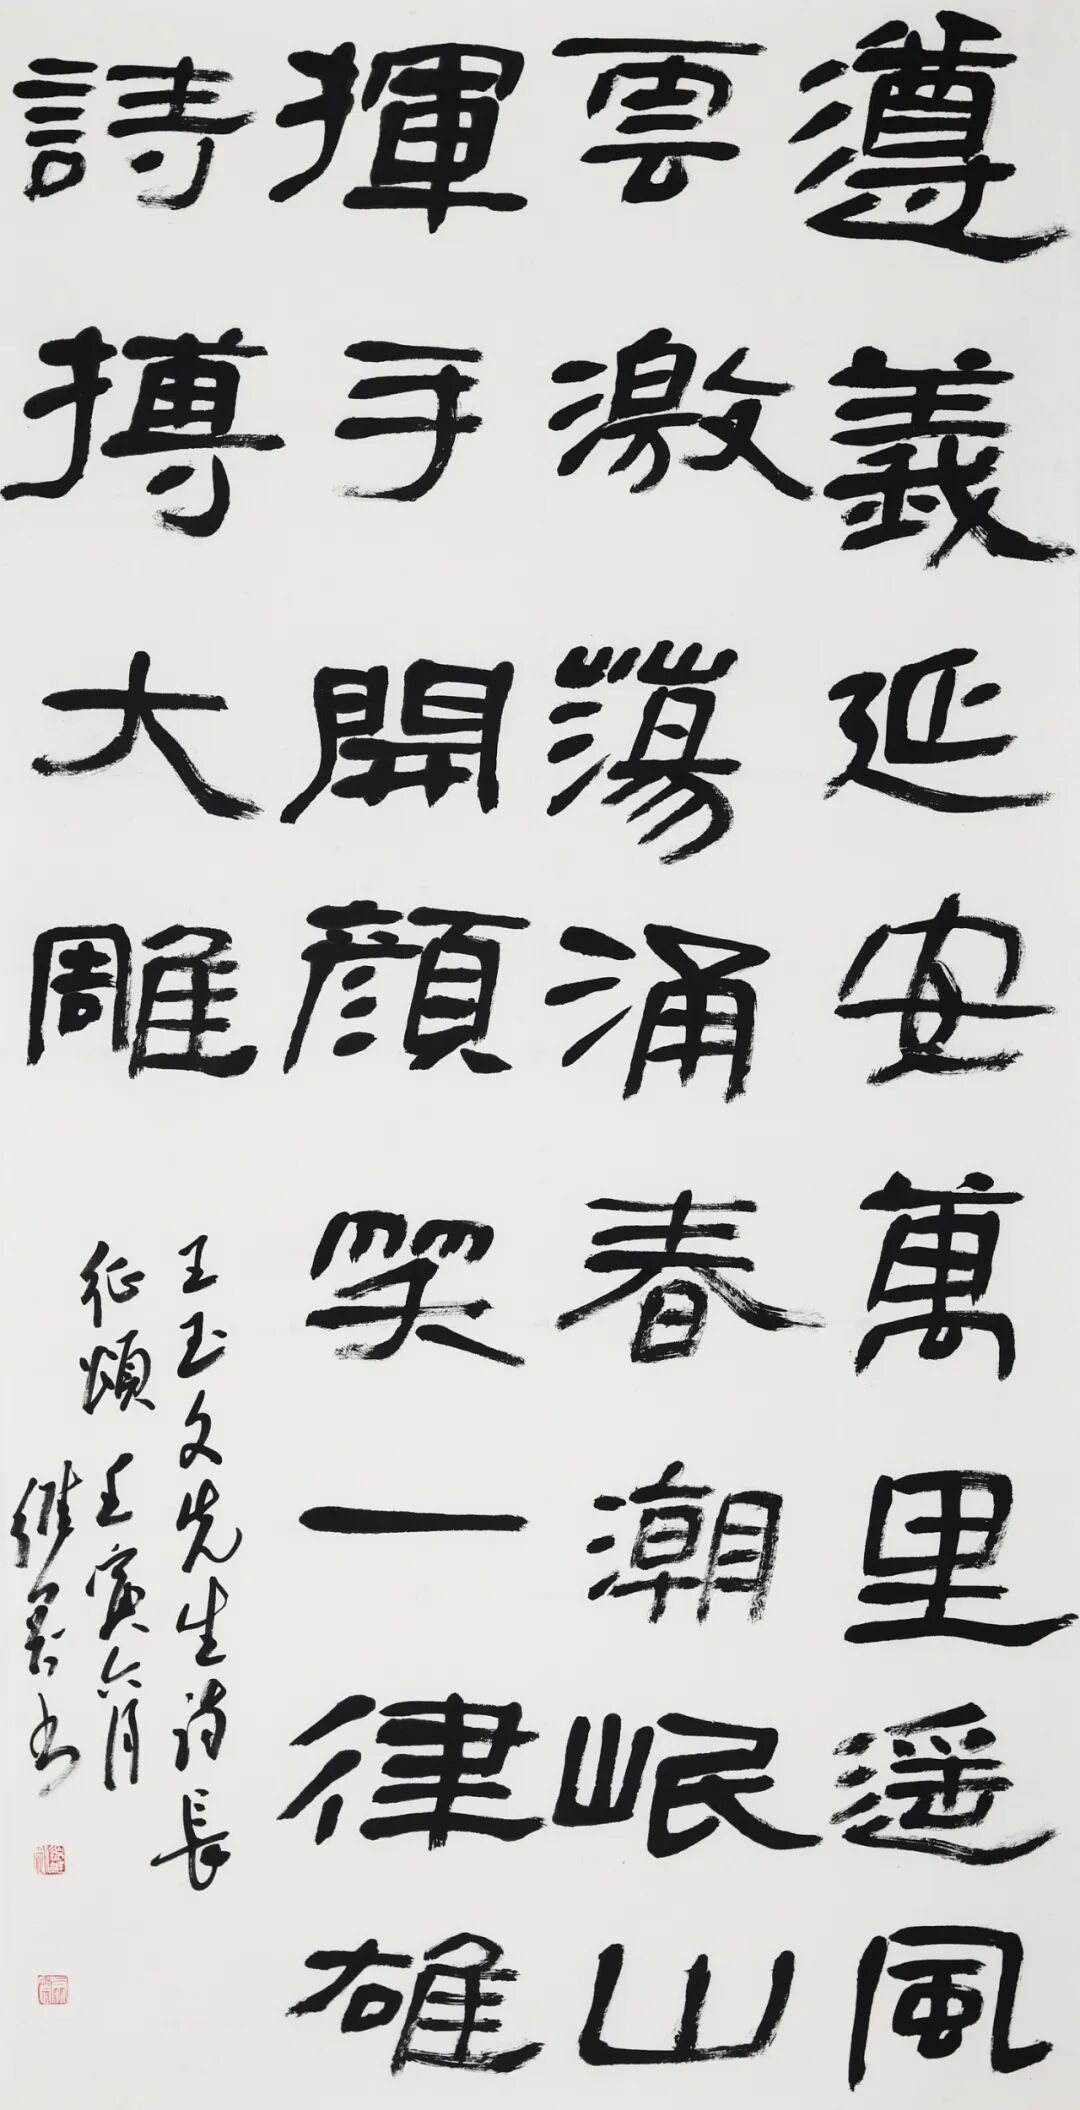 遵義延安萬里遥風
雲激蕩涌春潮岷山
揮手開顔笑一律雄
詩搏大雕
王玉文先生诗長
征頌 壬寅六月
书